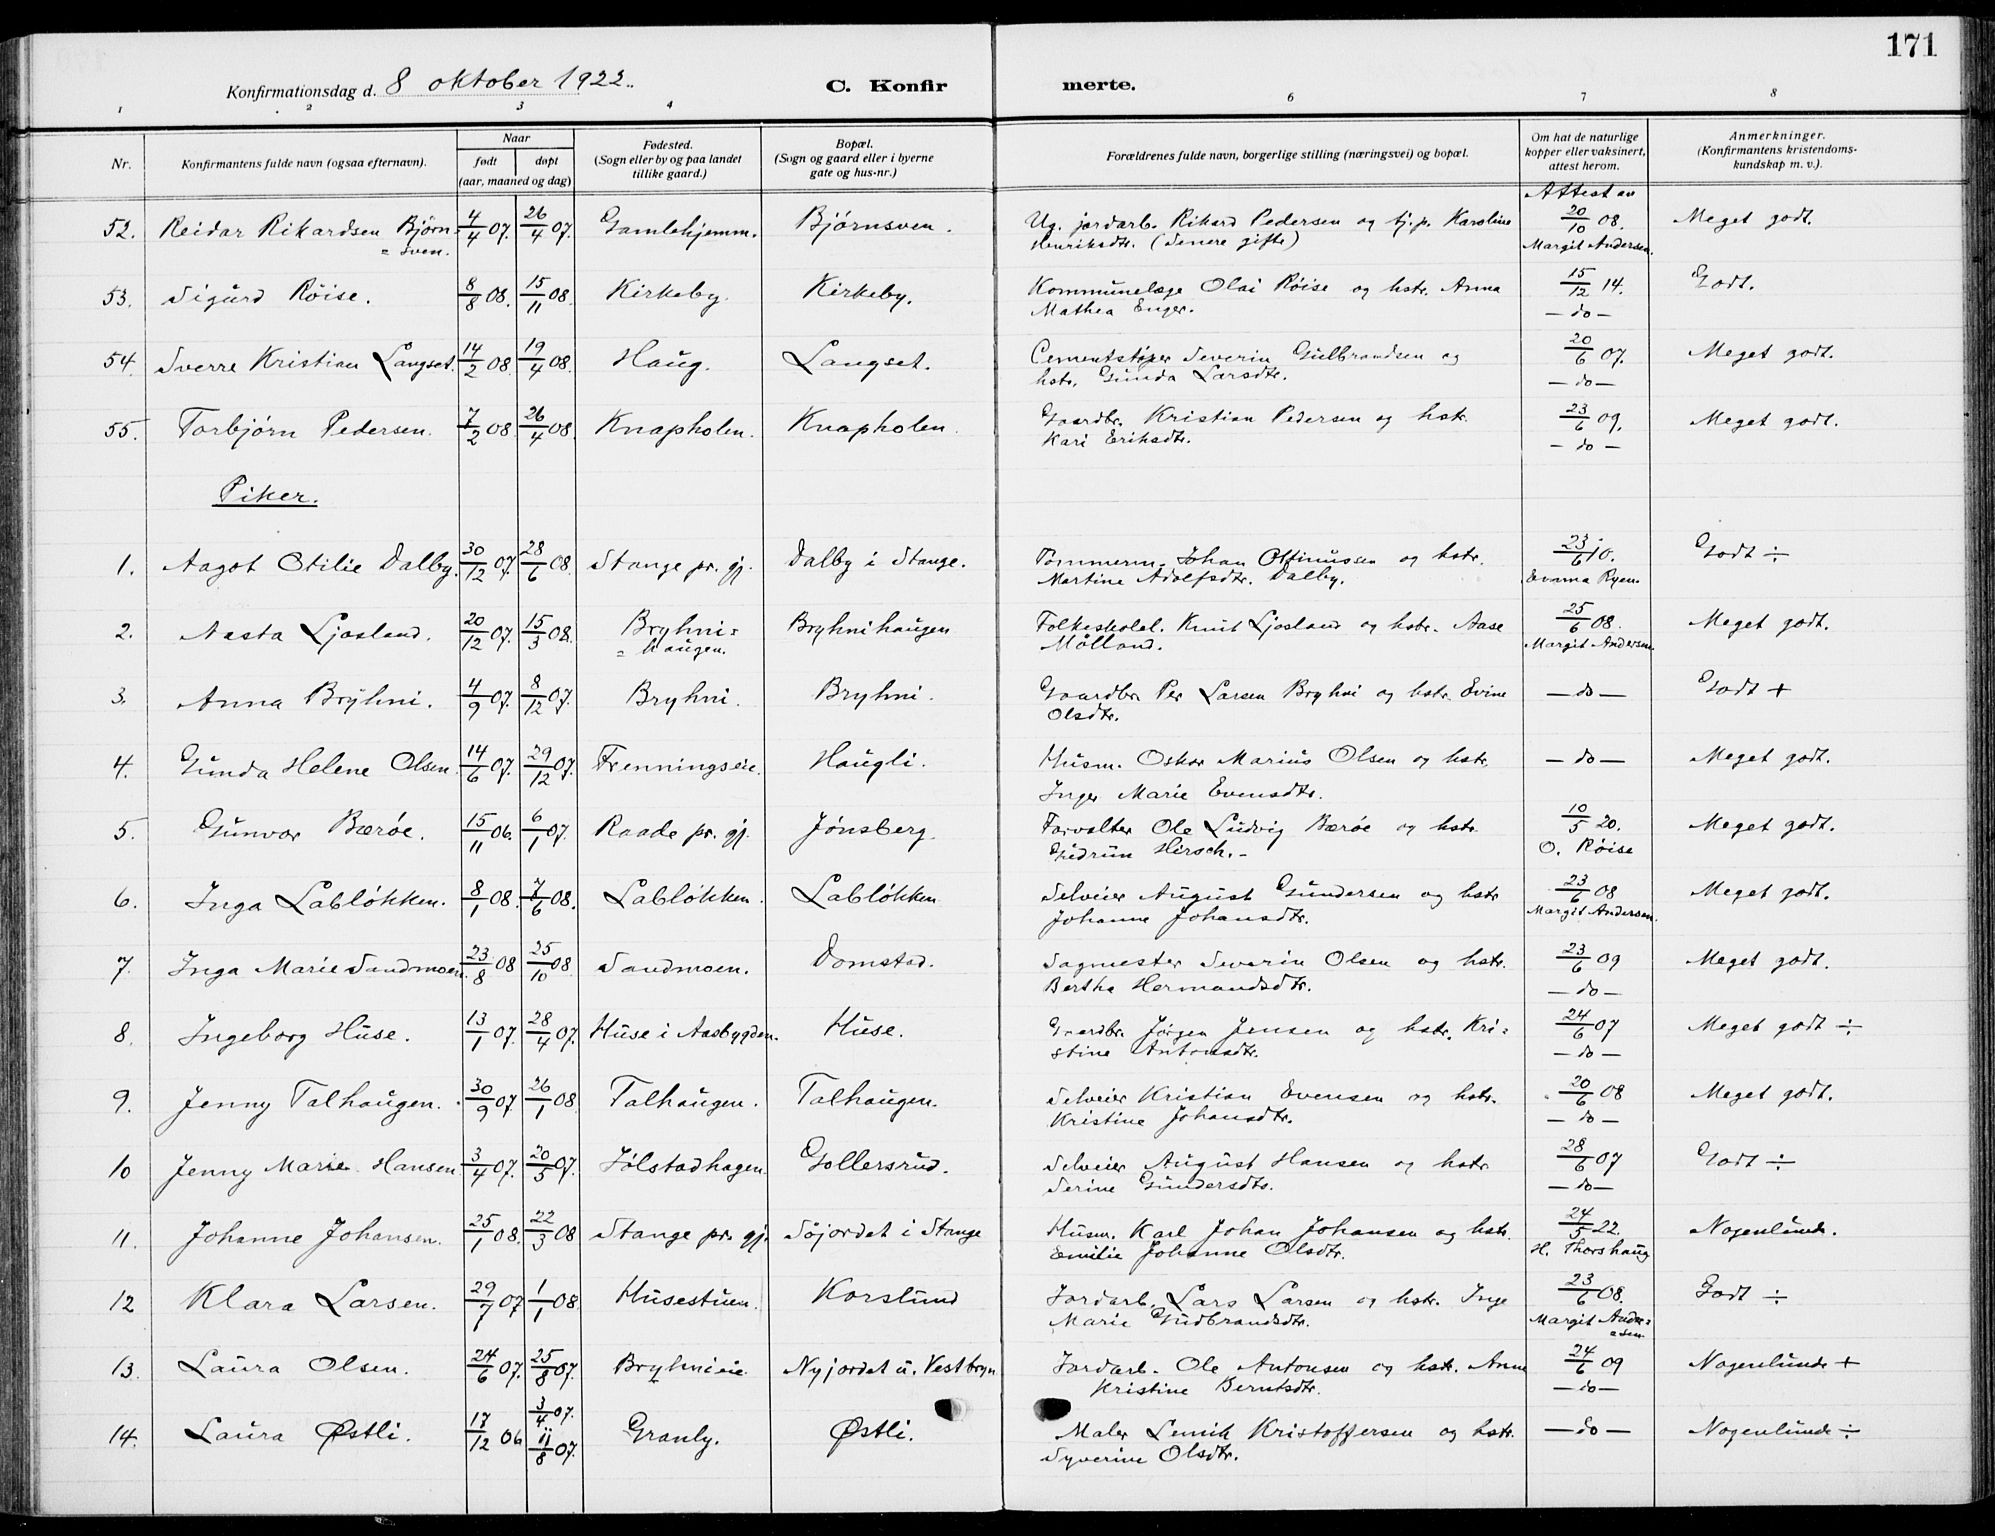 171
Konfirmationsdag d. 8 oktober 1922. C. Konfirmerte.
1 2 3 4 6 7 8
Nr. Konfirmantens fulde navn (ogsaa efternavn). Naar født døpt (aar, maaned og dag) Fødested. (Sogn eller by og paa landet tillike gaard.) Bopæl. (Sogn og gaard eller i byerne gate og hus-nr.) Forældrenes fulde navn, borgerlige stilling (næringsvei) og bopæl. Om hat de naturlige kopper eller vaksinert, attest herom. Anmerkninger. (Konfirmantens kristendomskundskap m. v.).
Attest av
52. Reidar Rikardsen Bjørn= 4/4 07. 26/4 07. Gamlehjemm. Bjørnsven. Ug. jordarb. Rikard Pedersen og tj.p. Karoline 20/10 08. Meget godt.
=sven. Henriksdtr. (senere gifte) Margit Andersen.
53. Sigurd Röise. 8/8 08. 15/11 08. Kirkeby. Kirkeby. Kommunelæge Olai Röise og hstr. Anna 15/12 14. Godt.
Mathea Enger. — do —
54. Sverre Kristian Langset. 14/2 08. 19/4 08. Haug. Langset. Cementstøper Severin Gulbrandsen og 20/6 07. Meget godt.
hstr. Gunda Larsdtr. — do —
55. Torbjørn Pedersen. 7/2 08. 26/4 08. Knapholen. Knapholen. Gaardbr. Kristian Pedersen og hstr. 23/6 09. Meget godt.
Kari Eriksdtr. — do —
Piker.
1. Aagot Otilie Dalby. 30/12 07. 28/6 08. Stange pr. gj. Dalby i Stange. Tömmerm. Johan Offinussen og hstr. 23/6 10. Godt ÷
Martine Adolfsdtr. Dalby. Emma Ryen
2. Aasta Ljosland. 20/12 07. 15/3 08. Bryhni= Bryhnihaugen Folkeskolel. Knut Ljosland og hstr. Aase 25/6 08. Meget godt.
=haugen. Mölland. Margit Andersen.
3. Anna Bryhni. 4/9 07. 8/12 07. Bryhni. Bryhni. Gaardbr. Per Larsen Bryhni og hstr. Evine — do — Godt +
Olsdtr.
4. Gunda Helene Olsen. 14/6 07. 29/12 07. Frenningseie. Haugli. Husm. Oskar Marius Olsen og hstr. — do — Meget godt.
Inger Marie Evensdtr.
5. Gunvor Bæröe. 15/11 06. 6/1 07. Raade pr. gj. Jönsberg. Forvalter Ole Ludvig Bæröe og hstr. 10/5 20. Meget godt.
Gudrun Hirsch. O. Röise
6. Inga Lablökken. 8/1 08. 7/6 08. Lablökken. Lablökken. Selveier August Gundersen og hstr. 23/6 08 Meget godt.
Johanne Johansdtr. Margit Andersen.
7. Inga Marie Sandmoen. 23/8 08 25/10 08 Sandmoen. Domstad. Sagmester Severin Olsen og hstr. 23/6 09 Meget godt.
Bertha Hermandsdtr. — do —
8. Ingeborg Huse. 13/1 07. 28/4 07. Huse i Aasbygden. Huse. Gaardbr. Jörgen Jensen og hstr. Kri= 24/6 07 Meget godt ÷
stine Antonsdtr. — do —
9. Jenny Talhaugen. 30/9 07. 26/1 08. Talhaugen. Talhaugen. Selveier Kristian Evensen og hstr. 20/6 08 Meget godt.
Kristine Johansdtr. — do —
10 Jenny Marie Hansen 3/4 07. 20/5 07. Jölstadhagen. Gollersrud. Selveier August Hansen og hstr. 28/6 07 Godt ÷
Serine Gundersdtr. — do —
11. Johanne Johansen. 25/1 08. 22/3 08 Stange pr. gj. Söjordet i Stange Husm. Karl Johan Johansen og hstr. 24/5 22. Nogenlunde.
Emilie Johanne Olsdtr. H. Thorshaug
12 Klara Larsen. 29/7 07 1/1 08. Husestuen. Korslund Jordarb. Lars Larsen og hstr. Inge 23/6 08. Godt ÷
Marie Gudbrandsdtr. Margit Ander=
=sen
13. Laura Olsen. 24/6 07. 25/8 07. Bryhnieie. Nyjordet u. Vestbryn Jordarb. Ole Antonsen og hstr. Anne 24/6 09 Nogenlunde +
Kristine Berntsdtr. — do —
14. Laura Østli. 17/12 06 3/4 07. 11/8 07. Granly. Østli. Maler Lauritz Kristoffersen og hstr. — do — Nogenlunde ÷
Syverine Olsdtr.